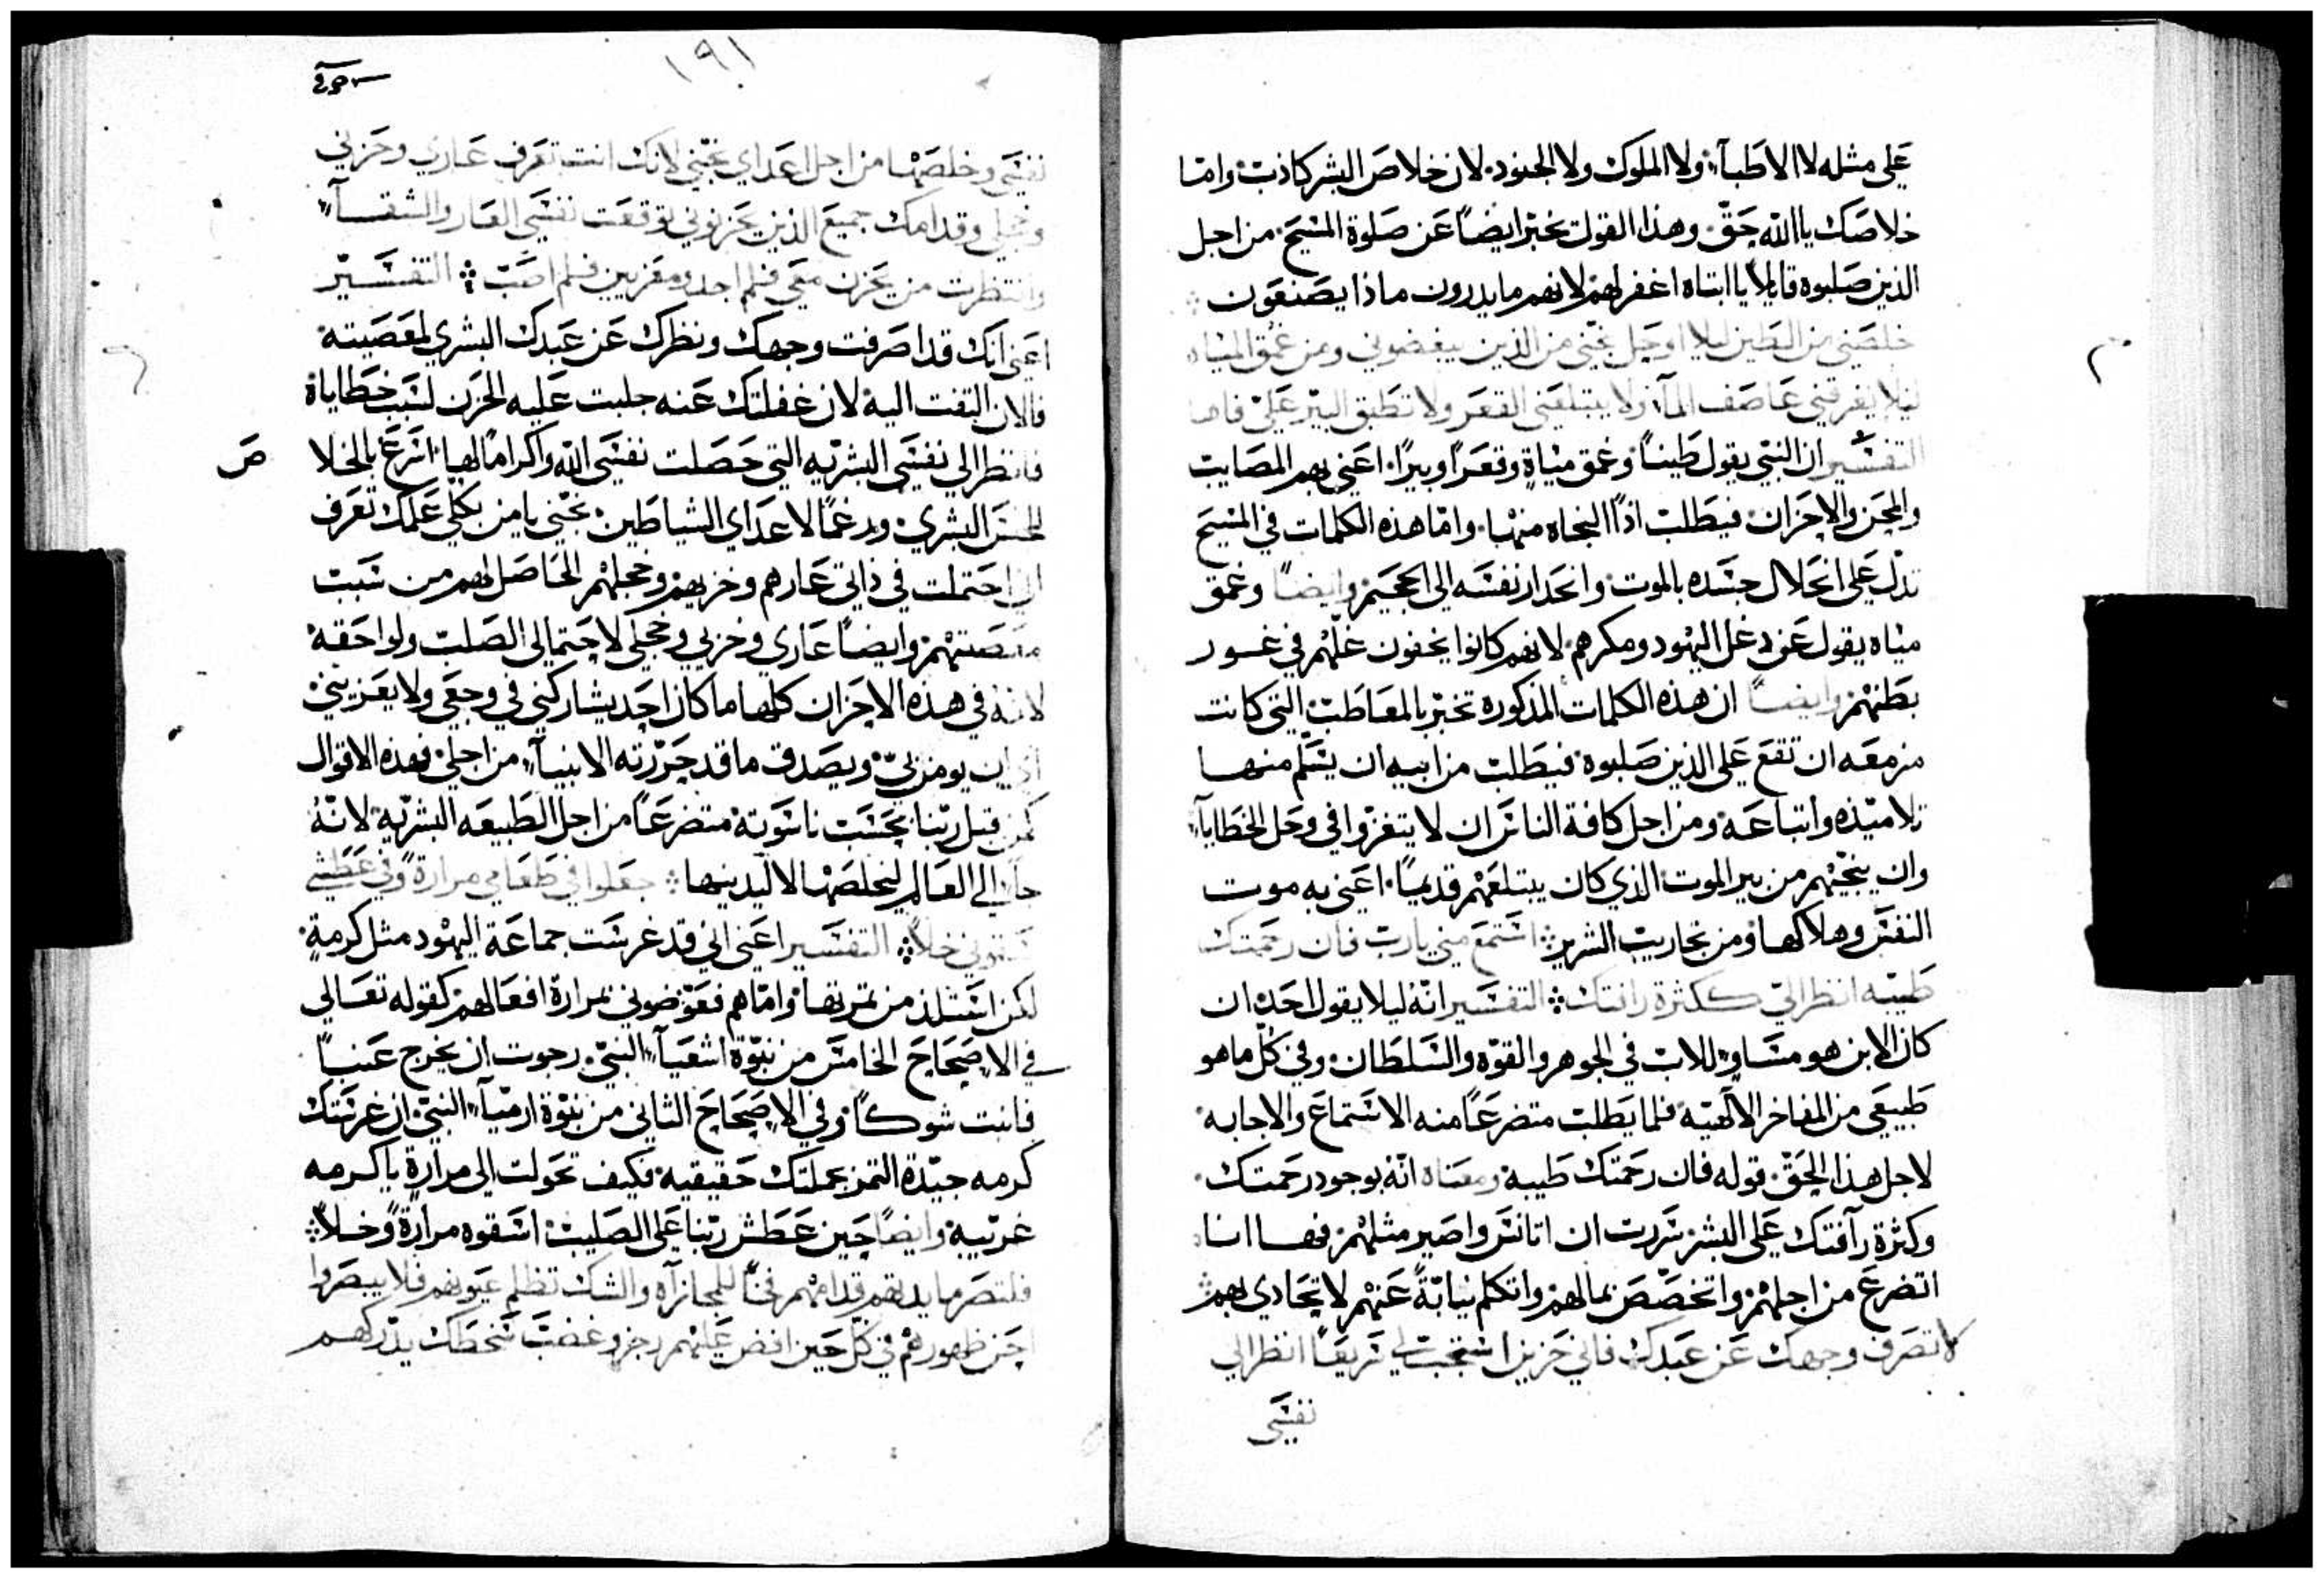 على مثله لا الاطبآء ولا الملوك ولا الجنود. لان خلاص البشر كاذب وامّا
خلاصك يا الله حقّ. وهذا القول يخبّر ايضاً عن صلوة المسيح. من اجل
الذين صلبوه قايلاً يا ابتاه اغفر لهم لانهم ما يدرون ماذا يصنعون
خلصني من الطين ليلا اوحل نجّني من الذين يبغضوني ومن عمق المياه
ليلا يغرقني عاصف المآء ولا يبتلعني القعر ولا تطبق البير عليّ فاها
التفسير ان النبي يقول طيناً وعمق مياه وقعراً وبيراً. اعني بهم المصايب
والمحن والاحزان. فيطلب اذاً النجاه منها. وامّا هذه الكلمات في المسيح
تدلّ على انحلال جسده بالموت وانحدار نفسه الى الجحيم وايضاً وعمق
مياه يقول عن دغل اليهود ومكرهم لانهم كانوا يخفون غلّهم في غسور
بطنهم وايضاً ان هذه الكلمات المذكوره تخبّر بالمعاطب التي كانت
مزمعه ان تقع على الذين صلبوه فيطلب من ابيه ان يسلّم منها
تلاميذه واتباعه ومن اجل كافة الناس ان لا يتغرّوا في وحل الخطايا
وان ينجّيهم من بير الموت الذي كان يبتلعهم قديماً. اعني به موت
النفس وهلاكها ومن تجاريب الشرير استمع مني يا ربّ فان رحمتك
طيبه انظر اليّ ككثرة رافتك التفسير انّه ليلا يقول احد ان
كان الابن هو مساوٍ للاب في الجوهر والقوّه والسلطان وفي كلّ ما هو
طبيعي من المفاخر الآلهيّه فلما يطلب متضرعاً منه الاستماع والاجابه
لاجل هذا الحقّ. قوله فان رحمتك طيبه ومعناه انّه بوجود رحمتك
وكثرة رآفتك على البشر سررت ان اتانس واصير مثلهم فها انا
اتضرع من اجلهم واتخصّص بما لهم واتكلم نيابّةً عنهم لاتحادي بهم
لا تصرف وجهك عن عبدك فاني حزين استجب لي سريعاً انظر الى
نفسي
١٩١
نفسي وخلصها من اجل اعداي نجّني لانك انت تعرف عاري وخزيي
وخجلي وقدامك جميع الذين يحزنوني توقعت نفسي العار والشقآء
وانتظرت من يحزن معي فلم اجد ومعزيين فلم اصب التفسير
اعني انك قد اصرفت وجهك ونظرك عن عبدك البشري لمعصيته
فالان التفت اليه لان غفلتك عنه جلبت عليه الحزن لسبب خطاياه
فانظر الى نفسي البشريه التي حصلت نفسي الله واكراماً لها اسرع بالخلا
ص
للجنس البشري ورغماً لاعداي الشياطين نجّني يا من بكلي علمك تعرف
اني احتملت في ذاتي عارهم وخزيهم وخجلهم الحاصل لهم من سبب
معصيتهم وايضاً عاري وخزيي وخجلي لاحتمالي الصلب ولواحقه
لانه في هذه الاحزان كلها ما كان احد يشاركني في وجعي ولا يعزيني
ان يومن بيّ ويصدق ما قد حرّرته الانبيآء من اجلي فهذه الاقوال
من قبل ربّنا بحسب ناسوته متضرعاً من اجل الطبيعه البشريّه لانّه
جآ الى العالم ليخلصها لا ليدينها جعلوا في طعامي مرارةً وفي عطشي
سقوني خلاً التفسير اعني اني قد غرست جماعة اليهود مثل كرمةٍ
لكن استلذ من ثمرتها وامّا هم فعوّضوني بمرارة افعالهم كقوله تعالى
في الاصحاح الخامس من نبوّة اشعيآء النبيّ. رجوت ان يخرج عنباً
فانبت شوكاً وفي الاصحاح الثاني من نبوّة ارميآء النبيّ ان غرستك
كرمه جيّدة الثمر بجملتك حقيقيه فكيف تحولت الى مرارةٍ يا كرمه
غريبه وايضاً حين عطش ربّنا على الصليب اسقوه مرارةً وخلاً
فلتصر مايدتهم قدامهم فخاً للمجازآه والشك تظلم عيونهم فلا يبصروا
احن ظهورهم في كل حين افض عليهم رجزك وغضب سخطك يدركهم